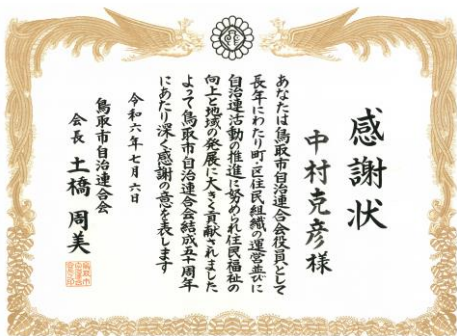 感謝状
中村克彦様
あなたは鳥取市自治連合会役員として
長年にわたり町・区住民組織の運営並びに
自治連活動の推進に努められ住民福祉の
向上と地域の発展に大きく貢献されました
よって鳥取市自治連合会結成五十周年
にあたり深く感謝の意を表します
令和六年七月六日
鳥取市自治連合会
会長 土橋周美